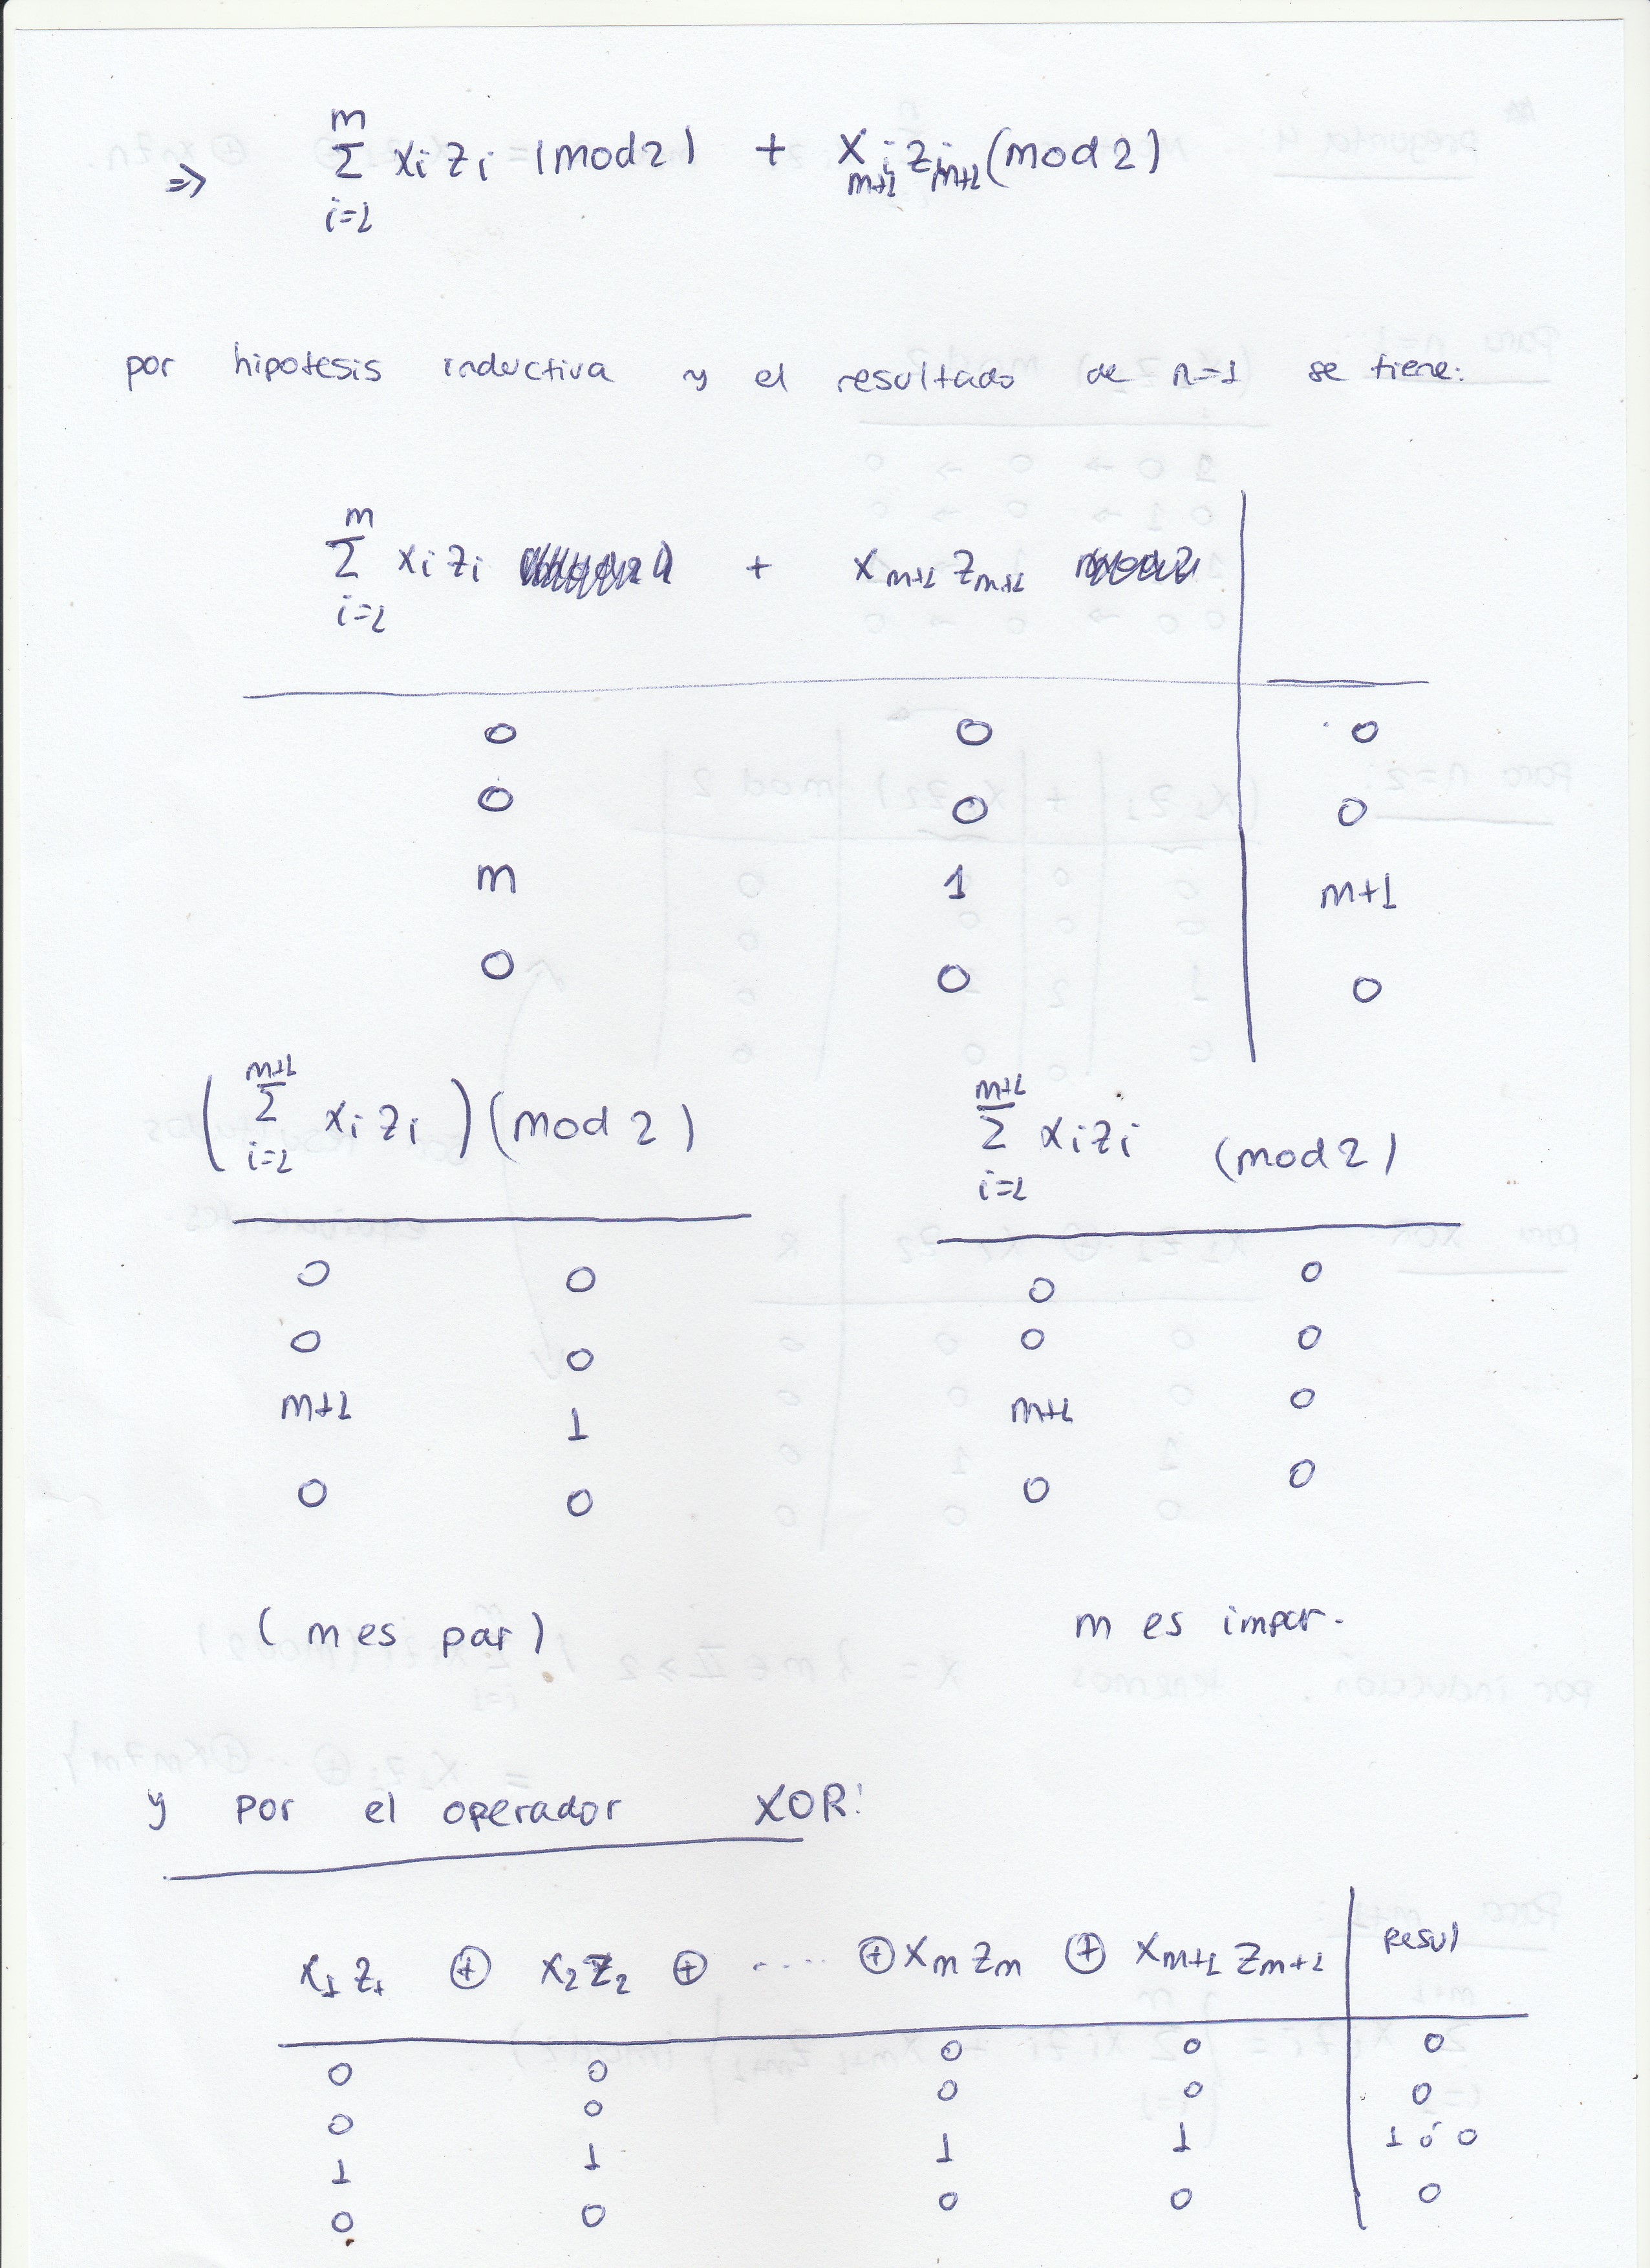 ⇒ m Σ i=1 xi zi (mod 2) + x m+1 z m+1 (mod 2)
por hipotesis inductiva y el resultado de n=1 se tiene:
m Σ i=1 xi zi + x m+1 z m+1
0 0 0
0 0 0
m 1 m+1
0 0 0
( m+1 Σ i=1 xi zi ) (mod 2) m+1 Σ i=1 xi zi (mod 2)
0 0 0 0
0 0 0 0
m+1 1 m+1 0
0 0 0 0
(m es par) m es impar.
y por el operador XOR:
x1 z1 ⊕ x2 z2 ⊕ .... ⊕ xm zm ⊕ x m+1 z m+1 resul
0 0 0 0 0
0 0 0 0 0
1 1 1 1 1 ó 0
0 0 0 0 0